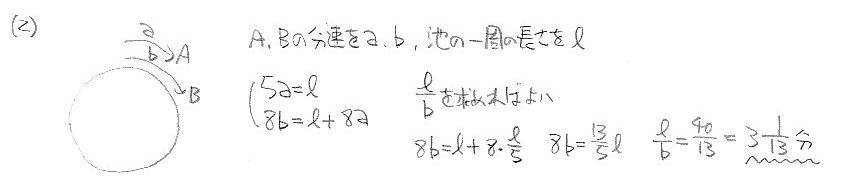 (2)
a
b A
B
A, Bの分速をa. b, 池の一周の長さをl
5a=l
8b=l+8a
l/b を求めればよい
8b=l+8・l/5 8b=13/5 l l/b=40/13=3 1/13 分